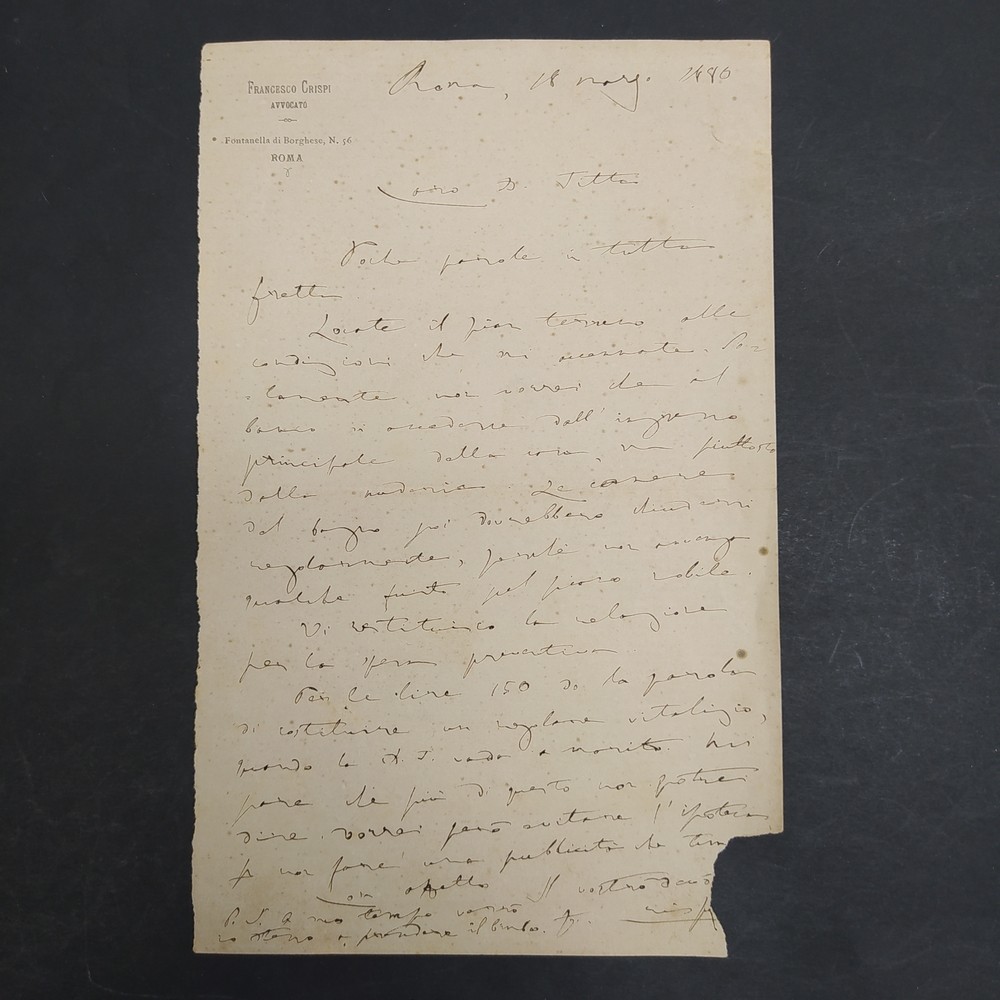 FRANCESCO CRISPI
AVVOCATO
Fontanella di Borghese, N. 56
ROMA
Roma, 18 marzo 1880
Caro D. Titta
Poche parole in tutta
fretta
Locate il pian terreno alle
condizioni che mi accennate. So-
lamente non vorrei che al
bagno si accedesse dall'ingresso
principale della casa, ma piuttosto
dalla
Le camere
del bagno poi dovrebbero chiudersi
regolarmente, perché non avvenga
qualche furto pel piano nobile.
Vi restituisco la relazione
per la spesa preventiva
Per le lire 150 do la parola
di costituire un regolare vitalizio,
quando la vada a marito. Mi
pare che più di questo non potrei
dire. Vorrei però evitare l'ipoteca
per non fare una pubblicità che
Con affetto Il vostro
Crispi
P. S. A suo tempo verrò
io stesso a prendere il